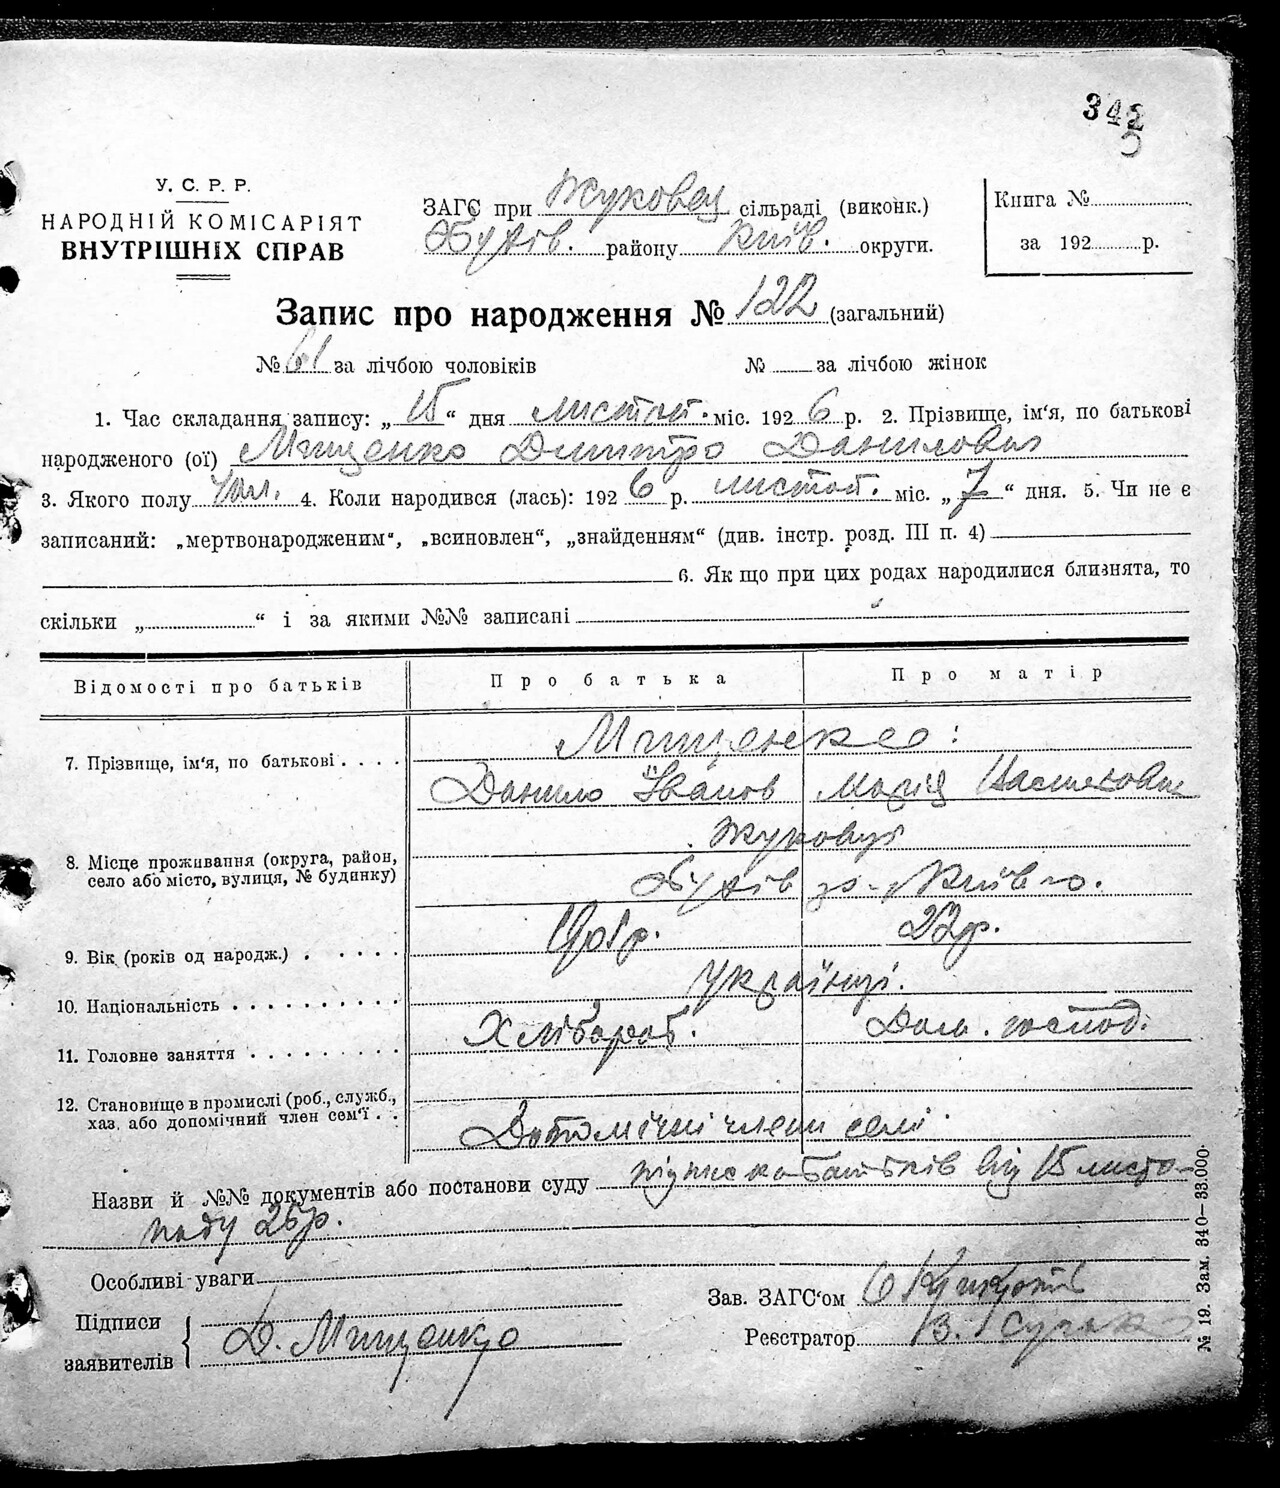 342
У. С. Р. Р.
НАРОДНІЙ КОМІСАРІЯТ
ВНУТРІШНІХ СПРАВ
ЗАГС при Жуковец сільраді (виконк.)
Обухів. району Київ. округи.
Книга №
за 192 р.
Запис про народження № 122 (загальний)
№ 61 за лічбою чоловіків № за лічбою жінок
1. Час складання запису: „ 15 “ дня листоп. міс. 192 6 р. 2. Прізвище, ім‘я, по батькові
народженого (ої) Міщенко Дмитро Данилович
3. Якого полу чол. 4. Коли народився (лась): 192 6 р. листоп. міс. „ 7 “ дня. 5. Чи не є
записаний: „мертвонародженим“, „всиновлен“, „знайденням“ (див. інстр. розд. III п. 4)
6. Як що при цих родах народилися близнята, то
скільки „ “ і за якими №№ записані
Відомості про батьків Про батька Про матір
7. Прізвище, ім‘я, по батькові Міщенко:
Данило Іванов Марія
8. Місце проживання (округа, район,
село або місто, вулиця, № будинку)
Жуковці
Обухів Київ
9. Вік (років од народж.) 22р.
10. Національність Українці.
11. Головне заняття Хлібороб. Дом. господ.
12. Становище в промислі (роб., служб.,
хаз. або допомічний член сем‘ї
Допомічні члени семї.
Назви й №№ документів або постанови суду підписка батьків від 15 листо-
паду 26р.
Особливі уваги
Підписи
заявителів
Д. Міщенко
Зав. ЗАГС‘ом
Реєстратор В.
№ 19. Зам. 340—33.000.